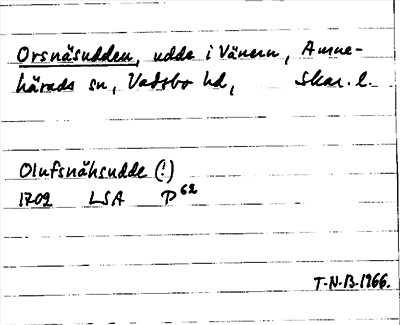 Orsnäsudden, udde i Vänern, Amne-
härads sn, Vadsbo hd, Skar. l.
Olufsnähsudde (!)
1709 LSA P 62
T-N.B.1966.